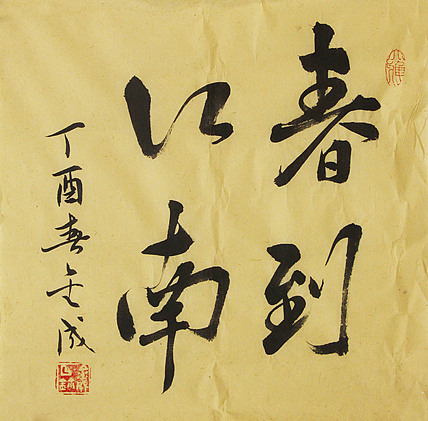 春到
江南
丁酉春金成